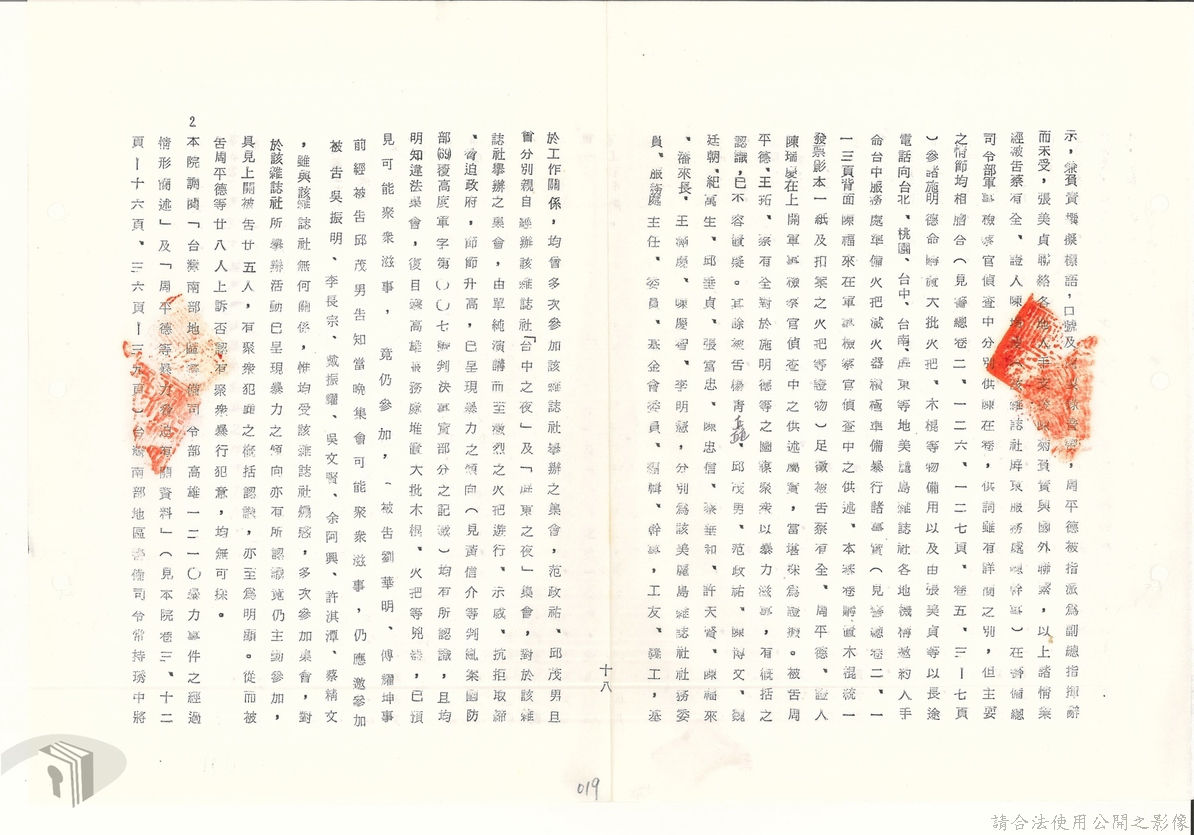 示，兼負責燬擬標語，口號及
而未受，張美貞聯絡各地人手 負責與國外聯繫，以上諸情業
經被告蔡有全、證人陳 該雜誌社屏東服務處 幹事）在警備總
司令部軍事檢察官偵查中分別供陳在卷，供詞雖有詳簡之別，但主要
之情節均相脗合（見警總卷二、一二六、一二七頁、卷五、三ー七頁
）參諸施明德命 大批火把、木棍等物備用以及由張美貞等以長途
電話向台北、桃園、台中、台南、屏東等地美麗島雜誌社各地機構被約人手
命台中服務處準備火把滅火器積極準備暴行諸事實（見警總卷二、一
一三頁背面陳福來在軍事檢察官偵查中之供述、本案卷附 木棍統一
發票影本一紙及扣案之火把等證物）足徵被告蔡有全、周平德、證人
陳瑞慶在上開軍事檢察官偵查中之供述屬實，當堪採為證據。被告周
平德、王拓、蔡有全對於施明德等之圖謀聚眾以暴力滋事，有概括之
認識，已不容置疑。其餘被告楊青矗、邱茂男、范政祐、陳博文、魏
廷朝、紀萬生、邱垂貞、張富忠、陳忠信、蔡垂和、許天賢、陳福來
、潘來長、王 、陳慶智、李明憲，分別為該美麗島雜誌社社務委
員、服務處主任、委員、基金會委員、編輯、幹事，工友、義工，基
十八
於工作關係，均曾多次參加該雜誌社舉辦之集會，范政祐、邱茂男且
曾分別親自 辦該雜誌社「台中之夜」及「屏東之夜」集會，對於該雜
誌社舉辦之集會，由單純演講而至激烈之火把遊行、示威、抗拒取締
、脅迫政府，節節升高，已呈現暴力之傾向（見黃信介等判亂案國防
部(69)覆高度軍字第〇〇七號判決事實部分之記載）均有所認識，且均
明知違法集會，復目 高雄服務處堆置大批木棍、火把等兇器，已預
見可能聚眾滋事，竟仍參加，（被告劉華明、傅耀坤事
前經被告邱茂男告知當晚集會可能聚眾滋事，仍應邀參加
被告吳振明、李長宗、戴振耀、吳文賢、余阿興、許淇潭、蔡精文
，雖與該雜誌社無何關係，惟均受該雜誌社 惑，多次參加集會，對
於該雜誌社所舉辦活動已呈現暴力之傾向亦有所認識竟仍主動參加，
具見上開被告廿五人，有聚眾犯罪之概括認識，亦至為明顯。從而被
告周平德等廿八人上訴否認有聚眾暴行犯意，均無可採。
2本院調閱「台灣南部地區警備司令部高雄一二一〇暴力事件之經過
情形簡述」及「周平德等暴力 有關資料」（見本院卷三、十二
頁ー十六頁、三六頁ー三九頁）台灣南部地區警備司令常持琇中將
019
請合法使用公開之影像